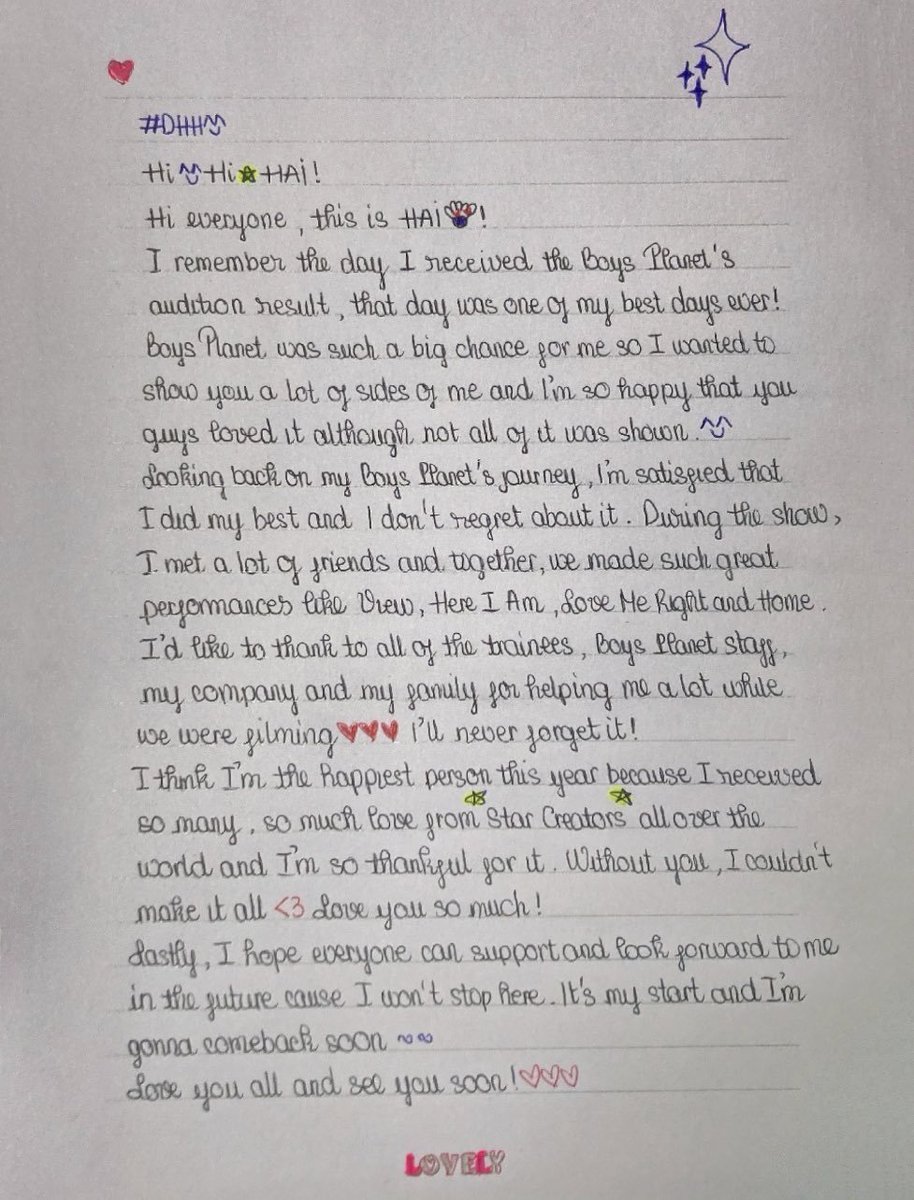 #DHH
Hi Hi HAI!
Hi everyone, this is HAI!
I remember the day I received the Boys Planet's
audition result, that day was one of my best days ever!
Boys Planet was such a big chance for me so I wanted to
show you a lot of sides of me and I'm so happy that you
guys loved it although not all of it was shown.
Looking back on my Boys Planet's journey, I'm satisfied that
I did my best and I don't regret about it. During the show,
I met a lot of friends and together, we made such great
perfomances like View, Here I Am, Love Me Right and Home.
I'd like to thank to all of the trainees, Boys Planet staff,
my company and my family for helping me a lot while
we were filming♥♥♥ I'll never forget it!
I think I'm the happiest person this year because I received
so many, so much love from Star Creators all over the
world and I'm so thankful for it. Without you, I couldn't
make it all <3 Love you so much!
Lastly, I hope everyone can support and look forward to me
in the future cause I won't stop here. It's my start and I'm
gonna comeback soon ~~
Love you all and see you soon!♡♡♡
LOVELY